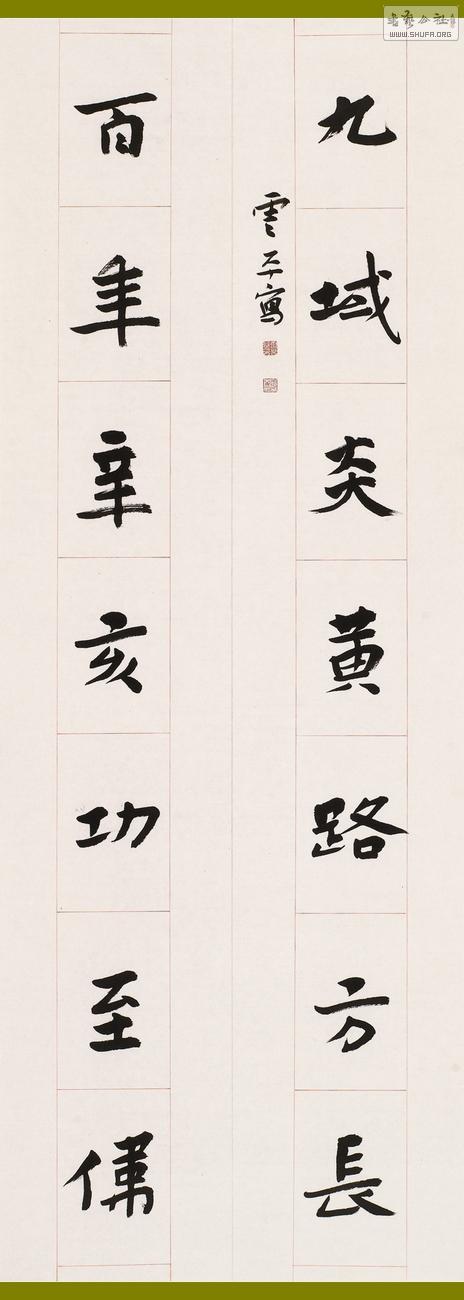 九域炎黄路方長
雲平寫
百年辛亥功至偉
書藝公社
WWW.SHUFA.ORG